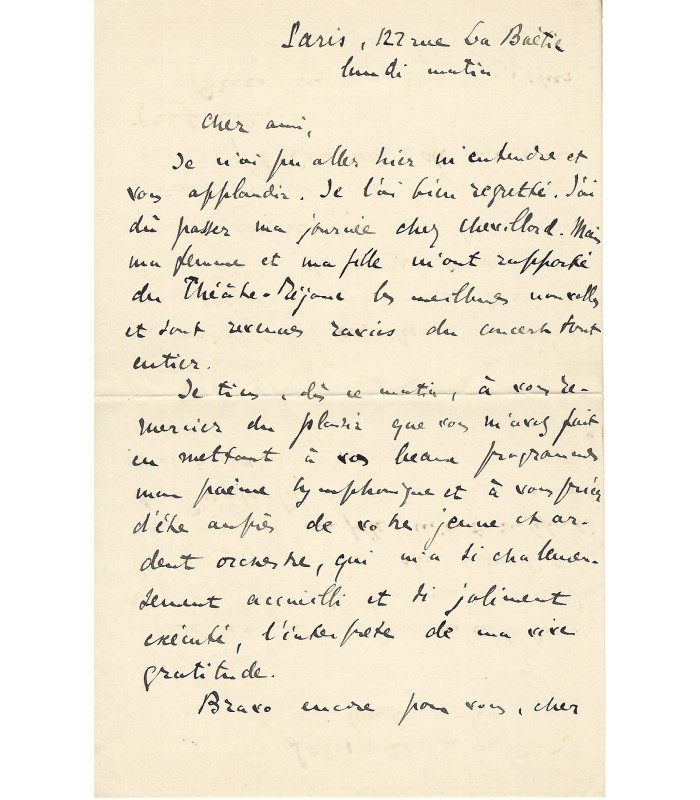 Paris, 122 rue La Boëtie
lundi matin
Cher ami,
Je n'ai pu aller hier m'entendre et
vous applaudir. Je l'ai bien regretté. J'ai
dû passer ma journée chez Chevillard. Mais
ma femme et ma fille m'ont rapporté
du Théâtre-Réjane les meilleures nouvelles
et sont revenues ravies du concert tout
entier.
Je tiens, dès ce matin, à vous re-
mercier du plaisir que vous m'avez fait
en mettant à vos beaux programmes
mon poème symphonique et à vous prier
d'être auprès de votre jeune et ar-
dent orchestre, qui m'a si chaleureu-
sement accueilli et si joliment
exécuté, l'interprète de ma vive
gratitude.
Bravo encore pour vous, cher